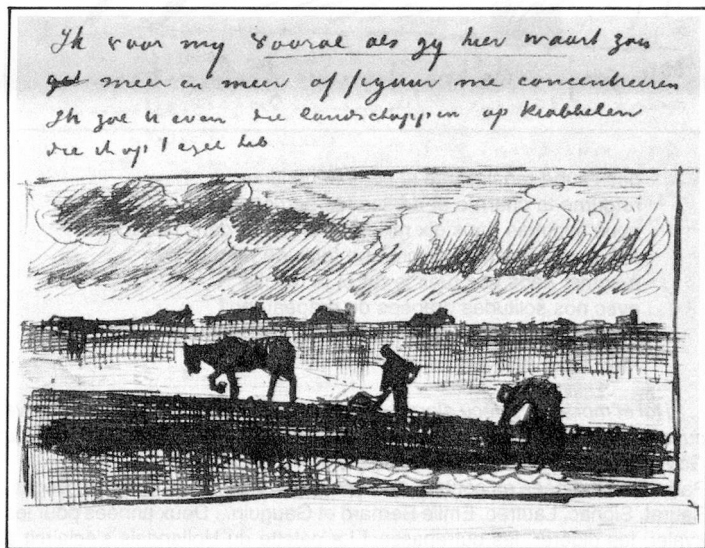 Ik voor my vooral als gy hier waart zou
meer en meer op figuur me concentreeren
Ik zal u even die landschappen op krabbelen
die ik op l'ezel heb